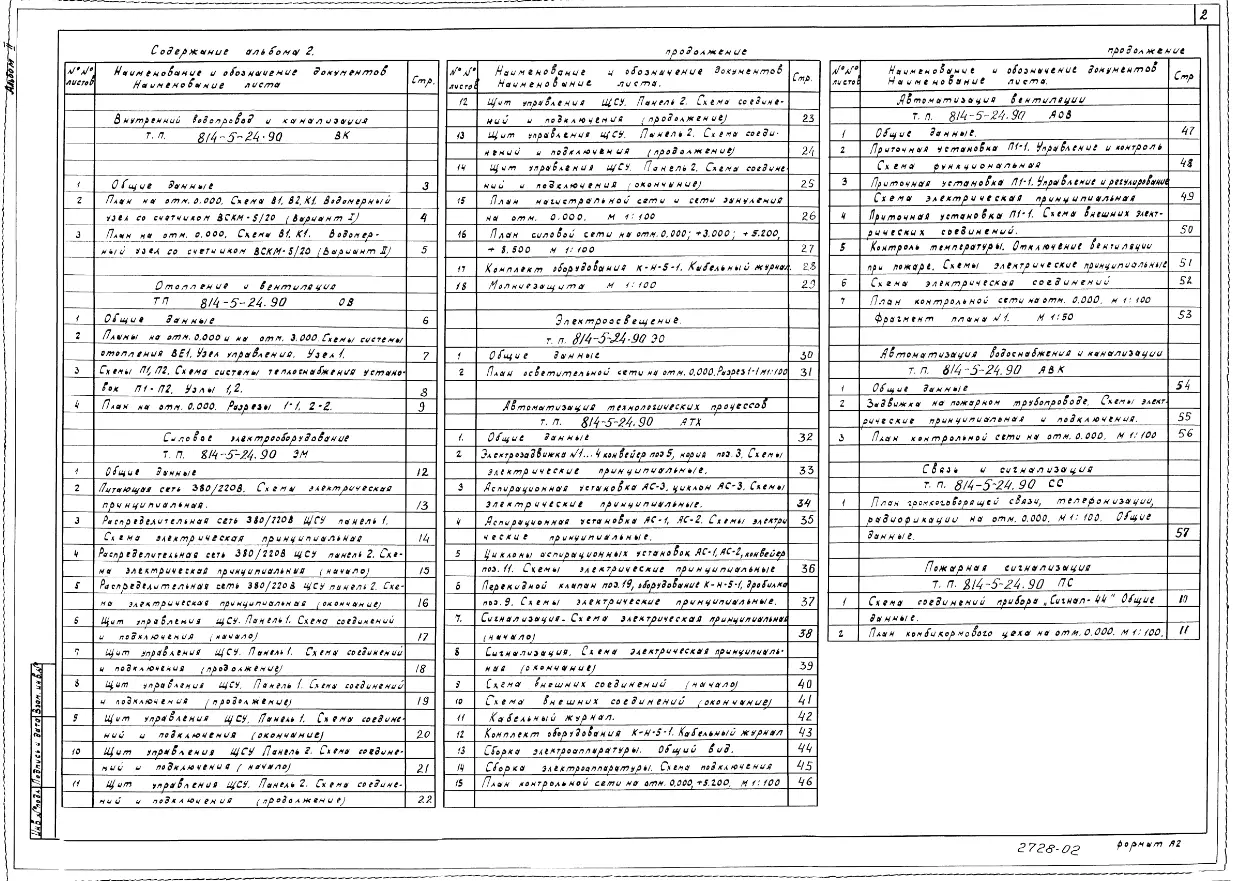 2
Альбом II
Содержание альбома 2.
№№ листов
Наименование и обозначение документов
Наименование листа
Стр.
Внутренний водопровод и канализация
Т. П. 814-5-24.90 ВК
1 Общие данные 3
2 План на отм. 0.000. Схема В1, В2, К1. Водомерный
узел со счетчиком ВСКМ-5/20 (Вариант I) 4
3 План на отм. 0.000. Схема В1. К1. Водомер-
ный узел со счетчиком ВСКМ-5/20 (Вариант II) 5
Отопление и вентиляция
ТП 814-5-24.90 ОВ
1 Общие данные 6
2 Планы на отм. 0.000 и на отм. 3.000. Схемы системы
отопления ВЕ1. Узел управления. Узел 1. 7
3 Схемы П1, П2. Схема системы теплоснабжения устано-
вок П1-П2. Узлы 1, 2. 8
4 План на отм. 0.000. Разрезы 1-1, 2-2. 9
Силовое электрооборудование
Т. П. 814-5-24.90 ЭМ
1 Общие данные 12
2 Питающая сеть 380/220В. Схемы электрическая
принципиальная. 13
3 Распределительная сеть 380/220В ЩСУ панель 1.
Схема электрическая принципиальная 14
4 Распределительная сеть 380/220В ЩСУ панель 2. Схе-
ма электрическая принципиальная (начало) 15
5 Распределительная сеть 380/220В ЩСУ панель 2. Схе-
ма электрическая принципиальная (окончание) 16
6 Щит управления ЩСУ. Панель 1. Схема соединений
и подключения (начало) 17
7 Щит управления ЩСУ. Панель 1. Схема соединений
и подключения (продолжение) 18
8 Щит управления ЩСУ. Панель 1. Схема соединений
и подключения (продолжение) 19
9 Щит управления ЩСУ. Панель 1. Схема соедине-
ний и подключения (окончание) 20
10 Щит управления ЩСУ Панель 2. Схема соедине-
ний и подключения (начало) 21
11 Щит управления ЩСУ. Панель 2. Схема соедине-
ний и подключения (продолжение) 22
продолжение
№№ листов
Наименование и обозначение документов
Наименование листа.
Стр.
12 Щит управления ЩСУ. Панель 2. Схема соедине-
ний и подключения (продолжение) 23
13 Щит управления ЩСУ. Панель 2. Схема соеди-
нений и подключения (продолжение) 24
14 Щит управления ЩСУ. Панель 2. Схема соедине-
ний и подключения (окончание) 25
15 План магистральной сети и сети зануления
на отм. 0.000. М 1:100 26
16 План силовой сети на отм. 0.000; +3.000; +5.200,
+8.500 М 1:100 27
17 Комплект оборудования К-Н-5-1. Кабельный журнал. 28
18 Молниезащита М 1:100 29
Электроосвещение.
Т. П. 814-5-24.90 ЭО
1. Общие данные 30
2 План осветительной сети на отм. 0.000. Разрез 1-1 М1:100 31
Автоматизация технологических процессов
Т. П. 814-5-24.90 АТХ
1. Общие данные 32
2 Электрозадвижка №1...4 конвейер поз 5, нория поз. 3. Схемы
электрические принципиальные. 33
3 Аспирационная установка АС-3, циклон АС-3. Схемы
электрические принципиальные. 34
4 Аспирационная установка АС-1, АС-2. Схемы электри 35
ческие принципиальные.
5 Циклоны аспирационных установок АС-1, АС-2, конвейер
поз. 11. Схемы электрические принципиальные 36
6 Перекидной клапан поз. 19, оборудование К-Н-5-1, дробилка
поз. 9. Схемы электрические принципиальные. 37
7. Сигнализация. Схема электрическая принципиальная
(начало) 38
8 Сигнализация. Схема электрическая принципиаль-
ная (окончание) 39
9 Схема внешних соединений (начало) 40
10 Схема внешних соединений (окончание) 41
11 Кабельный журнал. 42
12 Комплект оборудования К-Н-5-1. Кабельный журнал 43
13 Сборка электроаппаратуры. Общий вид. 44
14 Сборка электроаппаратуры. Схема подключения 45
15 План контрольной сети на отм. 0.000, +5.200. М 1:100 46
продолжение
№№ листов
Наименование и обозначение документов
Наименование листа.
Стр
Автоматизация вентиляции
Т. П. 814-5-24.90 АОВ
1 Общие данные. 47
2 Приточная установка П1-1. Управление и контроль
Схема функциональная 48
3 Приточная установка П1-1. Управление и регулирование
Схема электрическая принципиальная 49
4 Приточная установка П1-1. Схема внешних элект-
рических соединений. 50
5 Контроль температуры. Отключение вентиляции
при пожаре. Схемы электрические принципиальные 51
6 Схема электрическая соединений 52
7 План контрольной сети на отм. 0.000. М 1:100
Фрагмент плана №1. М 1:50 53
Автоматизация водоснабжения и канализации
Т. П. 814-5-24.90 АВК
1 Общие данные 54
2 Задвижка на пожарном трубопроводе. Схемы элект-
рические принципиальная и подключения. 55
3 План контрольной сети на отм. 0.000. М 1:100 56
Связь и сигнализация
Т. П. 814-5-24.90 СС
1 План громкоговорящей связи, телефонизации,
радиофикации на отм. 0.000. М 1:100. Общие
данные. 57
Пожарная сигнализация
Т. П. 814-5-24.90 ПС
1 Схема соединений прибора „Сигнал-44" Общие 10
данные.
2 План комбикормового цеха на отм. 0.000. М 1:100. 11
Инв. № подл. Подпись и дата Взам. инв. №
2728-02 формат А2